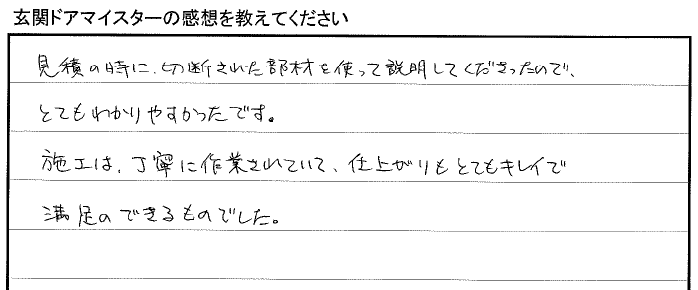 玄関ドアマイスターの感想を教えてください
見積の時に、切断された部材を使って説明してくださったので、
とてもわかりやすかったです。
施工は、丁寧に作業されていて、仕上がりもとてもキレイで
満足のできるものでした。